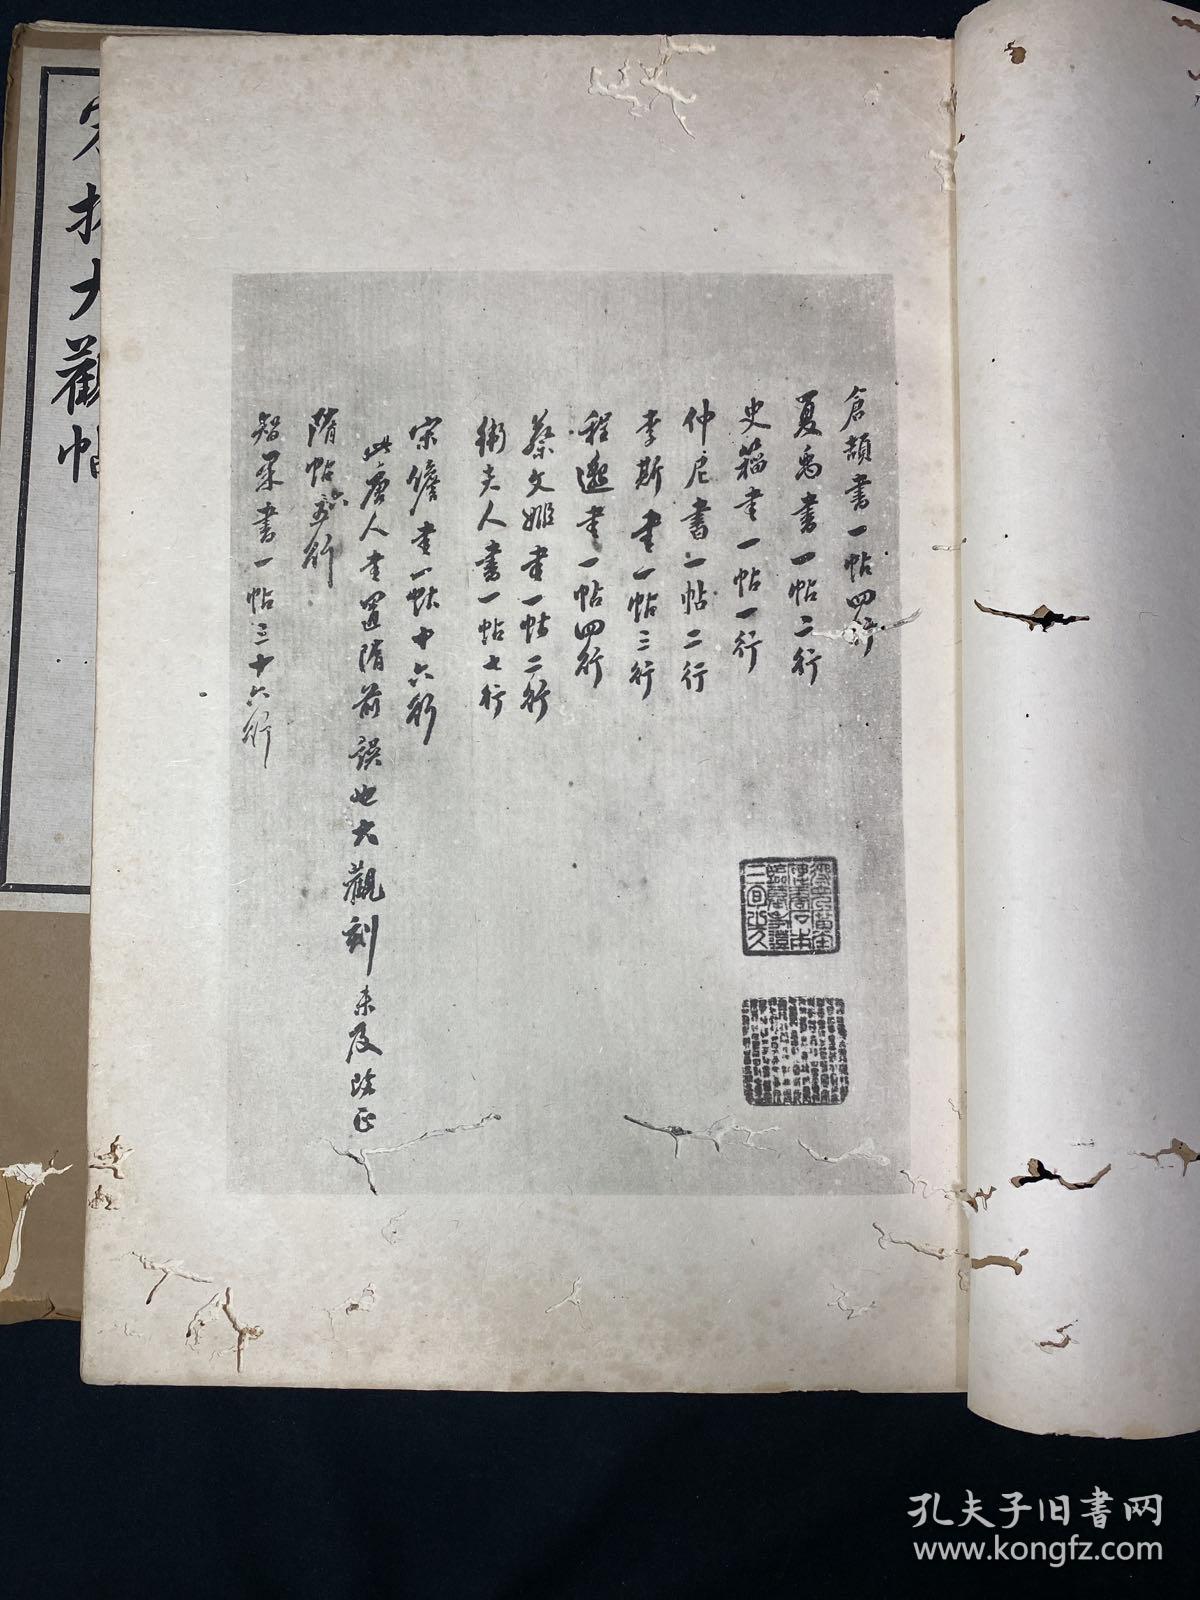 倉頡書一帖四行
夏禹書一帖二行
史籀書一帖一行
仲尼書一帖二行
李斯書一帖三行
程邈書一帖四行
蔡文姬書一帖二行
衛夫人書一帖七行
宋儋書一帖十六行
此唐人書置隋前誤也大觀刻未及改正
隋帖六行
智果書一帖三十六行
宋拓大觀帖
孔夫子旧书网
www.kongfz.com